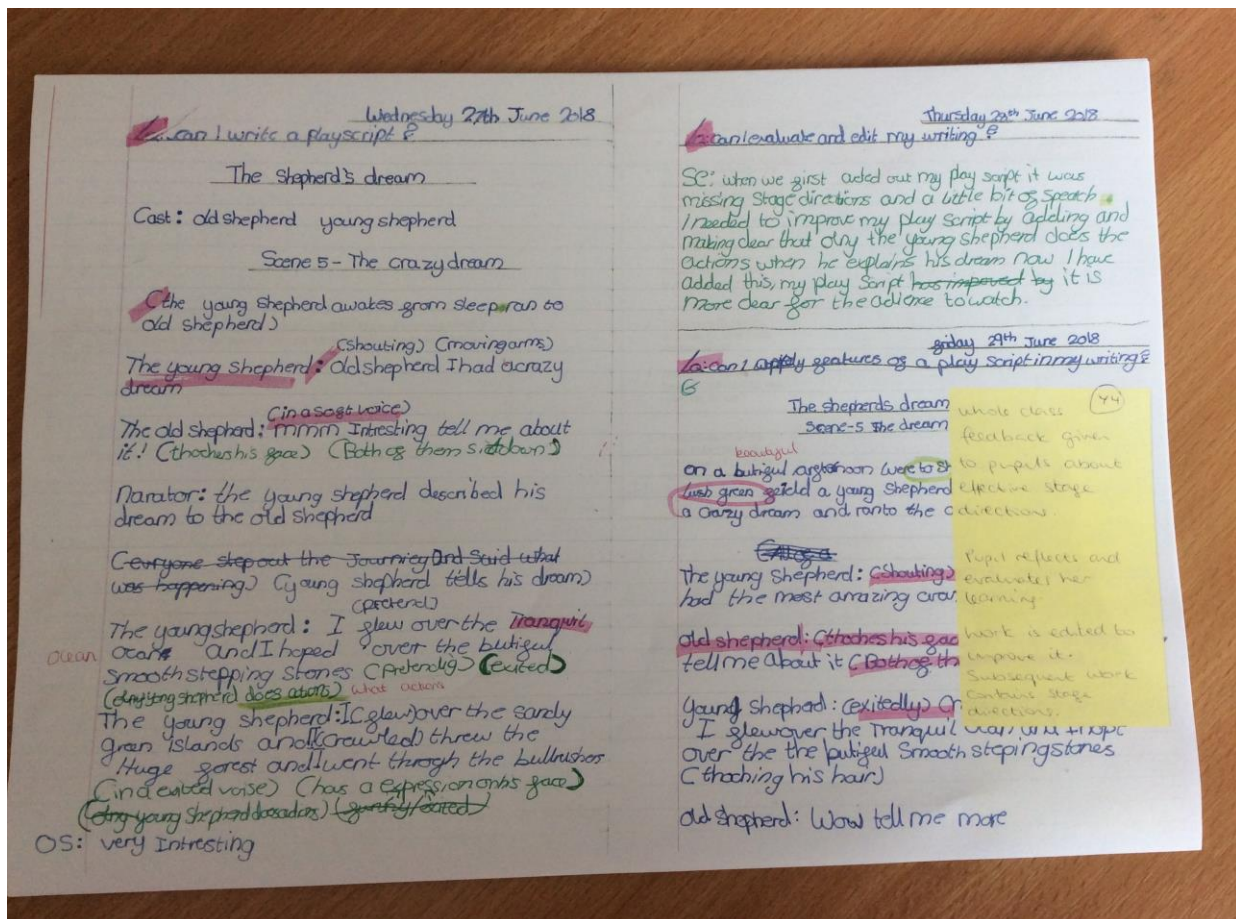 Wednesday 27th June 2018
Lo: can I write a playscript?
The Shepherd's dream
Cast: old shepherd young shepherd
Scene 5 - The crazy dream
(the young shepherd awakes from sleep ran to
old shepherd)
(shouting) (moving arms)
The young shepherd: old shepherd I had a crazy
dream
(in a soft voice)
The old shepherd: mmm Intresting tell me about
it! (thoches his face) (Both of them sit down)
Narator: the young shepherd described his
dream to the old shepherd
(everyone step out the Journiey and said what
was happening) (young shepherd tells his dream)
(pretend)
The young shepherd: I flew over the Tranquil
ocean and I hoped over the butiful
smooth stepping stones (pretendig) (exited)
(olny yong shepherd does actions) what actions
The young shepherd: I (flew) over the sandy
green islands and I (crawled) threw the
Huge forest and I went through the bullrushes
(in a exited voise) (has a expression on his face)
(olny young shepherd does actions)
OS: very Intresting
Thursday 28th June 2018
Lo: can I evaluate and edit my writing?
SC: when we first acted out my play script it was
missing stage dirations and a little bit of speach
I needed to improve my play script by adding and
making clear that olny the young shepherd does the
actions when he explains his dream now I have
added this, my play script has improved by it is
more clear for the adience to watch.
friday 29th June 2018
Lo: can I apply features of a play script in my writing?
The shepherds dream
Scene-5 The dream
beautiful
on a butiful afternoon were to
lush green feild a young Shepherd
a crazy dream and ran to the
The young shepherd: (shouting)
had the most amazing
old shepherd: (thoches his
tell me about it (Both of
Young shepherd: (exitedly)
I flew over the Tranquil
over the the butiful smooth steping stones
(thoching his hair)
old shepherd: Wow tell me more
Y4
whole class
feedback given
to pupils about
effective stage
direction.
Pupil reflects and
evaluates her
learning.
Work is edited to
improve it.
Subsequent work
contains stage
directions.